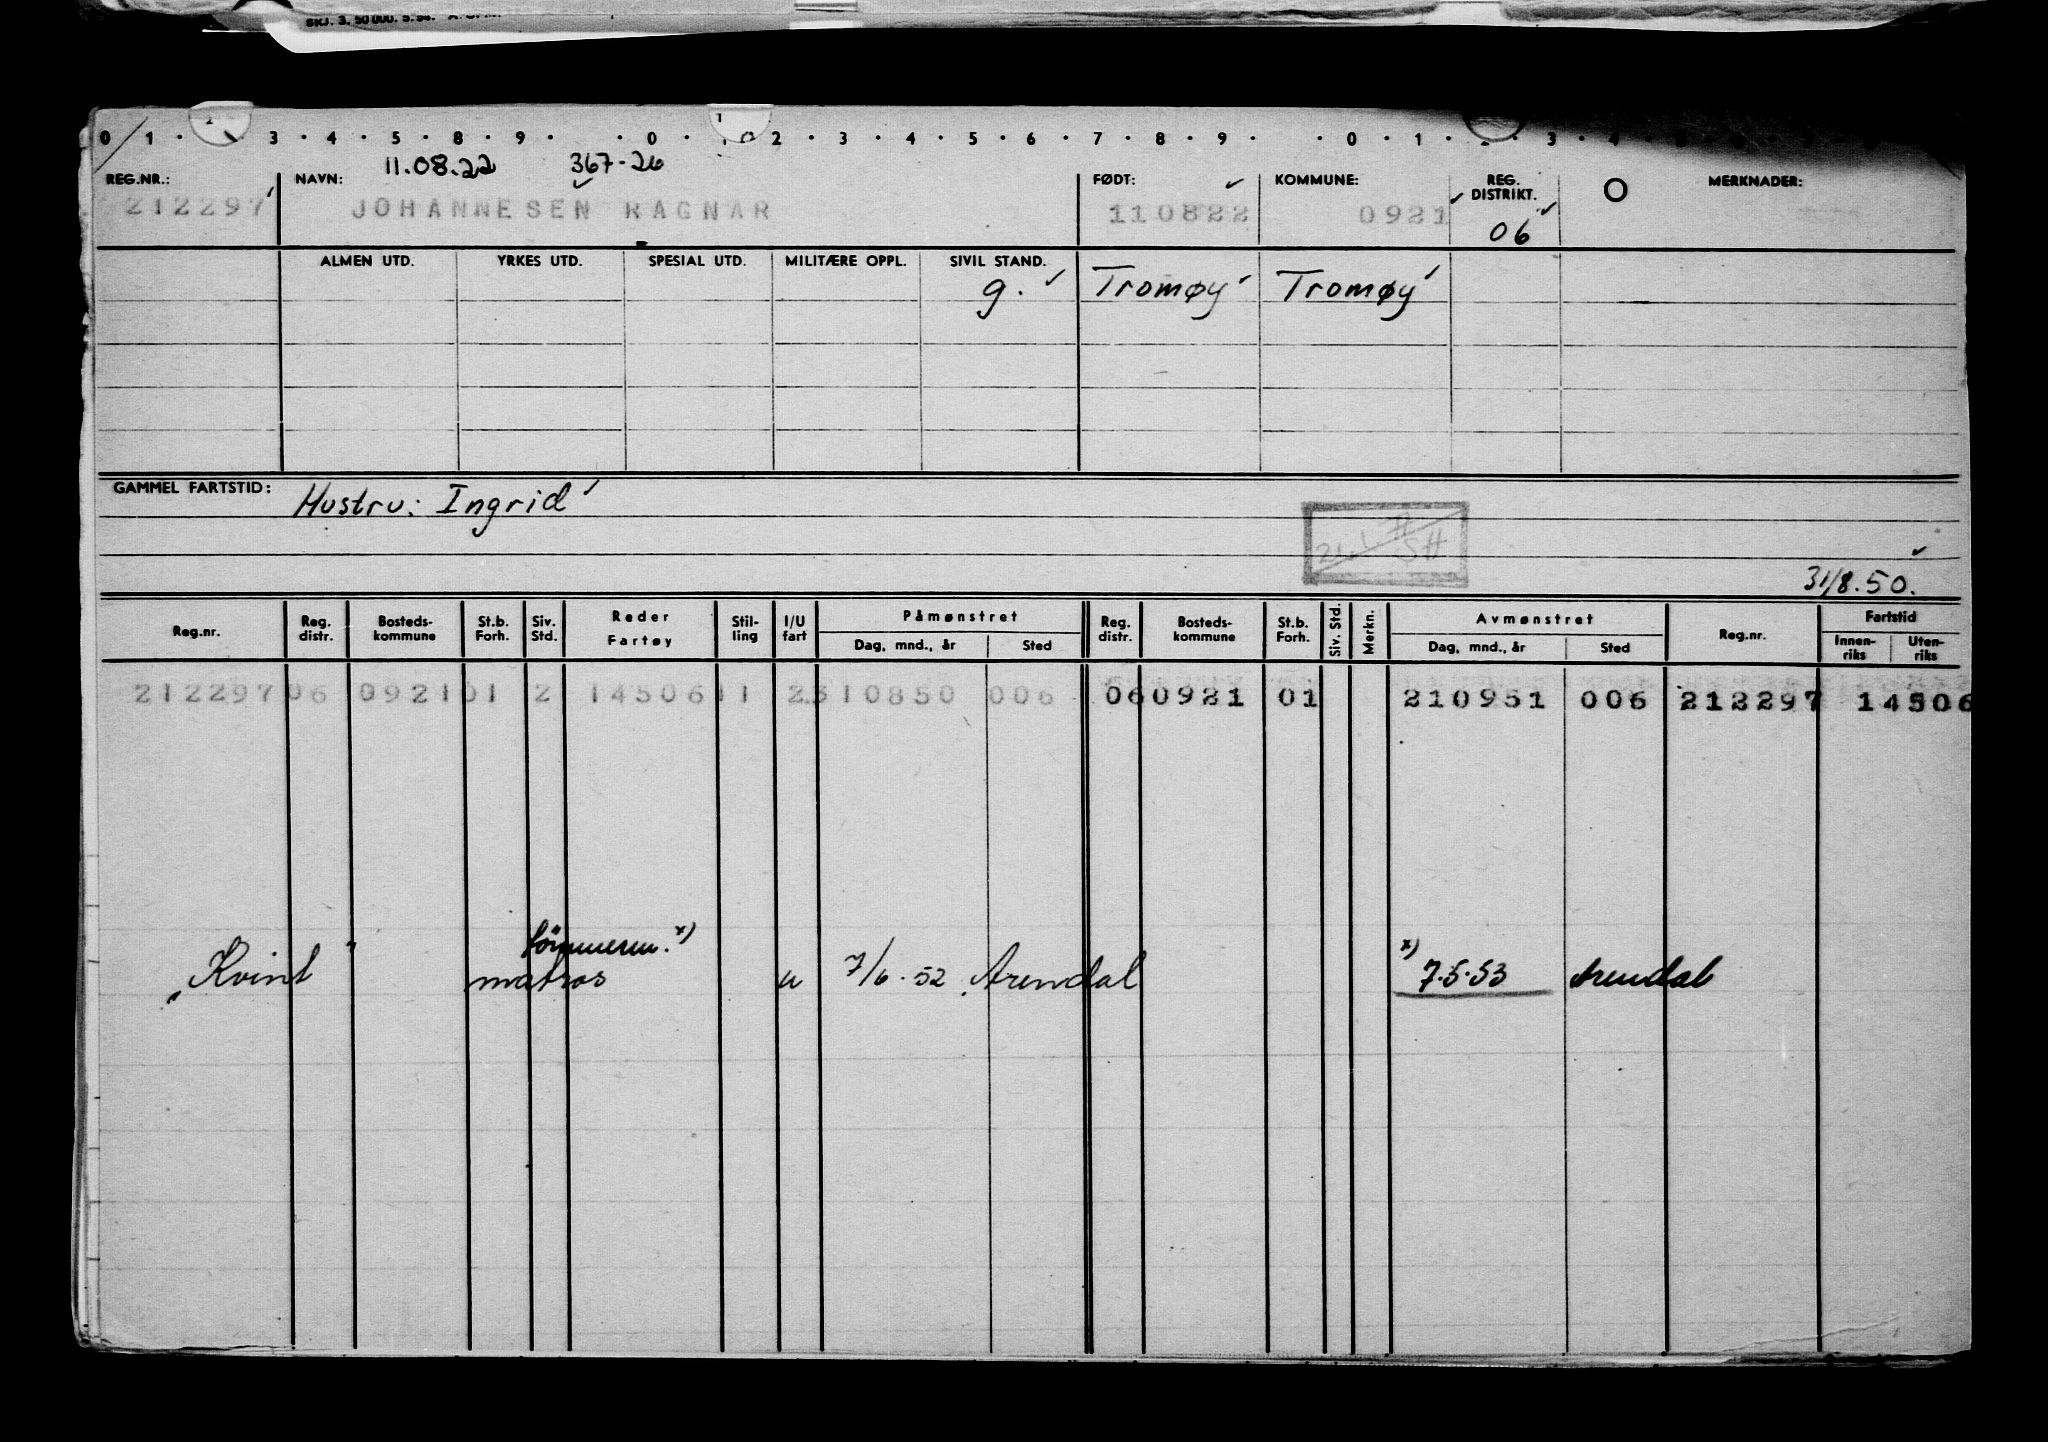 SKJ. 3. 50 000. 5.50.
0 1 · 2 3 · 4 · 5 · 8 · 9 · · 0 · 1 2 · 3 · 4 · 5 · 6 · 7 · 8 · 9 · · 0 · 1 · 3 · 4
11.08.22 367-26
REG.NR.: NAVN: FØDT: KOMMUNE: REG. DISTRIKT. O MERKNADER:
212297 JOHANNESEN RAGNAR 110822 0921 06
ALMEN UTD. YRKES UTD. SPESIAL UTD. MILITÆRE OPPL. SIVIL STAND.
g. Tromøy Tromøy
GAMMEL FARTSTID: Hustru: Ingrid
31/8.50.
Reg.nr. Reg. distr. Bosteds-kommune St.b. Forh. Siv. Std. Reder Fartøy Stil-ling I/U fart Påmønstret Dag, mnd., år Sted Reg. distr. Bosteds-kommune St.b. Forh. Siv. Std. Merkn. Avmønstret Dag, mnd., år Sted Reg.nr. Fartstid Innen-riks Uten-riks
212297 06 0921 01 2 14506 11 2 310850 006 06 0921 01 210951 006 212297 14506
tömmerm. x) x)
"Kvint" matros u 7/6.52 Arendal 7.5.53 Arendal